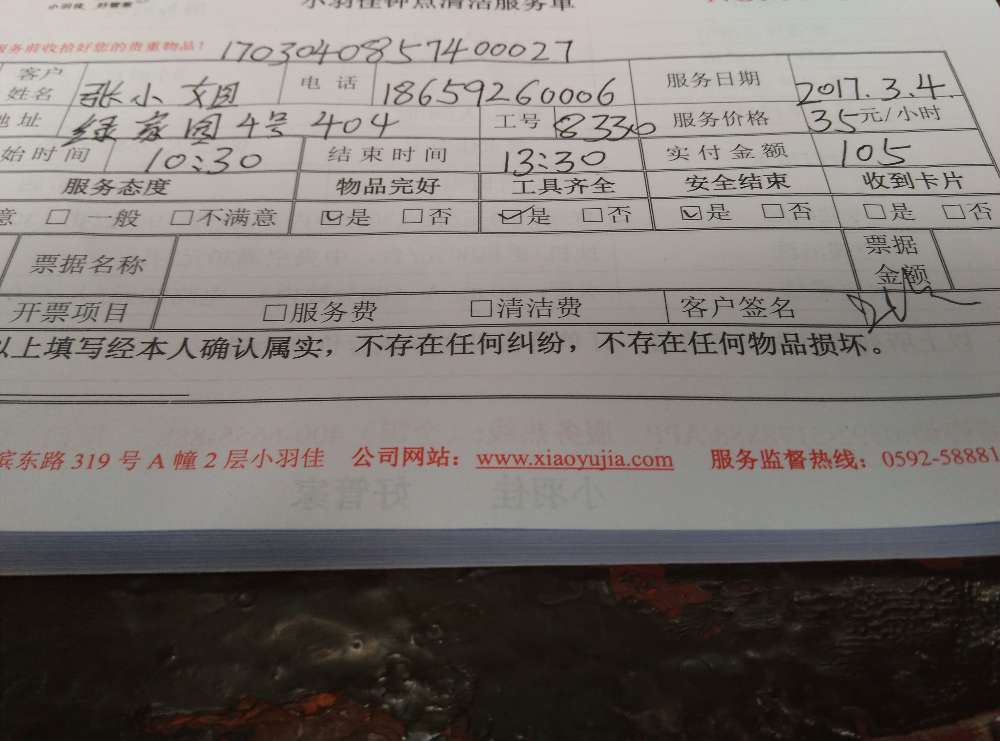 小羽佳 好管家
小羽佳钟点清洁服务单
服务前收拾好您的贵重物品! 1703040857400027
客户姓名 张小姐 电话 18659260006 服务日期 2017.3.4.
地址 绿家园4号404 工号 8330 服务价格 35元/小时
始时间 10:30 结束时间 13:30 实付金额 105
服务态度 物品完好 工具齐全 安全结束 收到卡片
意 □一般 □不满意 ☑是 □否 ☑是 □否 ☑是 □否 □是 □否
票据名称 票据金额
开票项目 □服务费 □清洁费 客户签名
以上填写经本人确认属实，不存在任何纠纷，不存在任何物品损坏。
滨东路319号A幢2层小羽佳 公司网站：www.xiaoyujia.com 服务监督热线：0592-58881